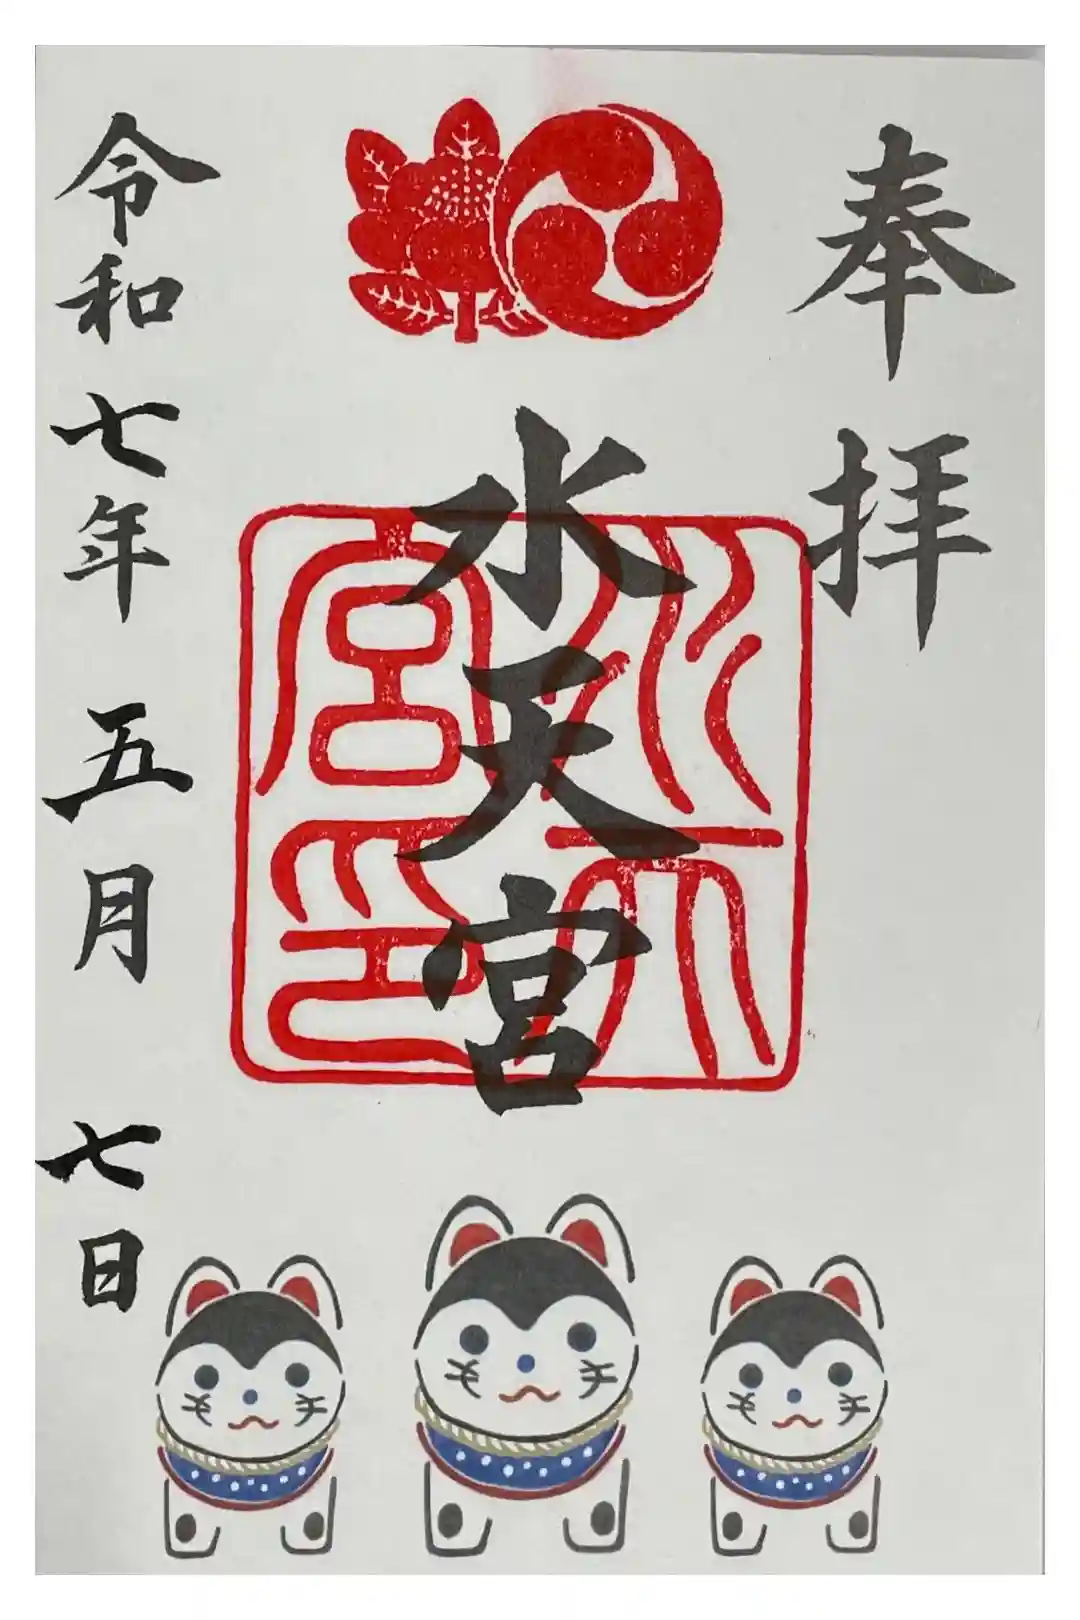 奉拝
水天宮
水天宮印
令和七年五月七日